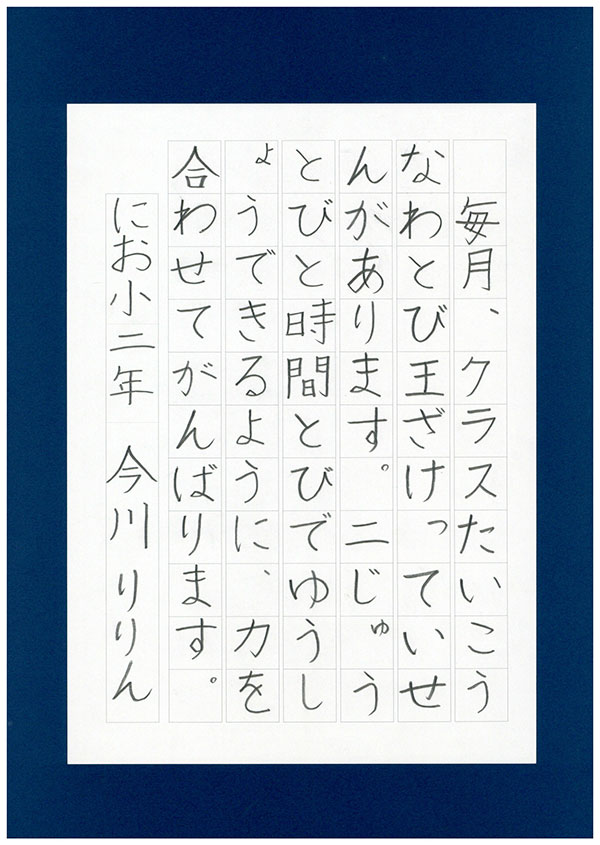 毎月、クラスたいこう
なわとび王ざけっていせ
んがあります。二じゅう
とびと時間とびでゆうし
ょうできるように、力を
合わせてがんばります。
にお小二年　今川りりん